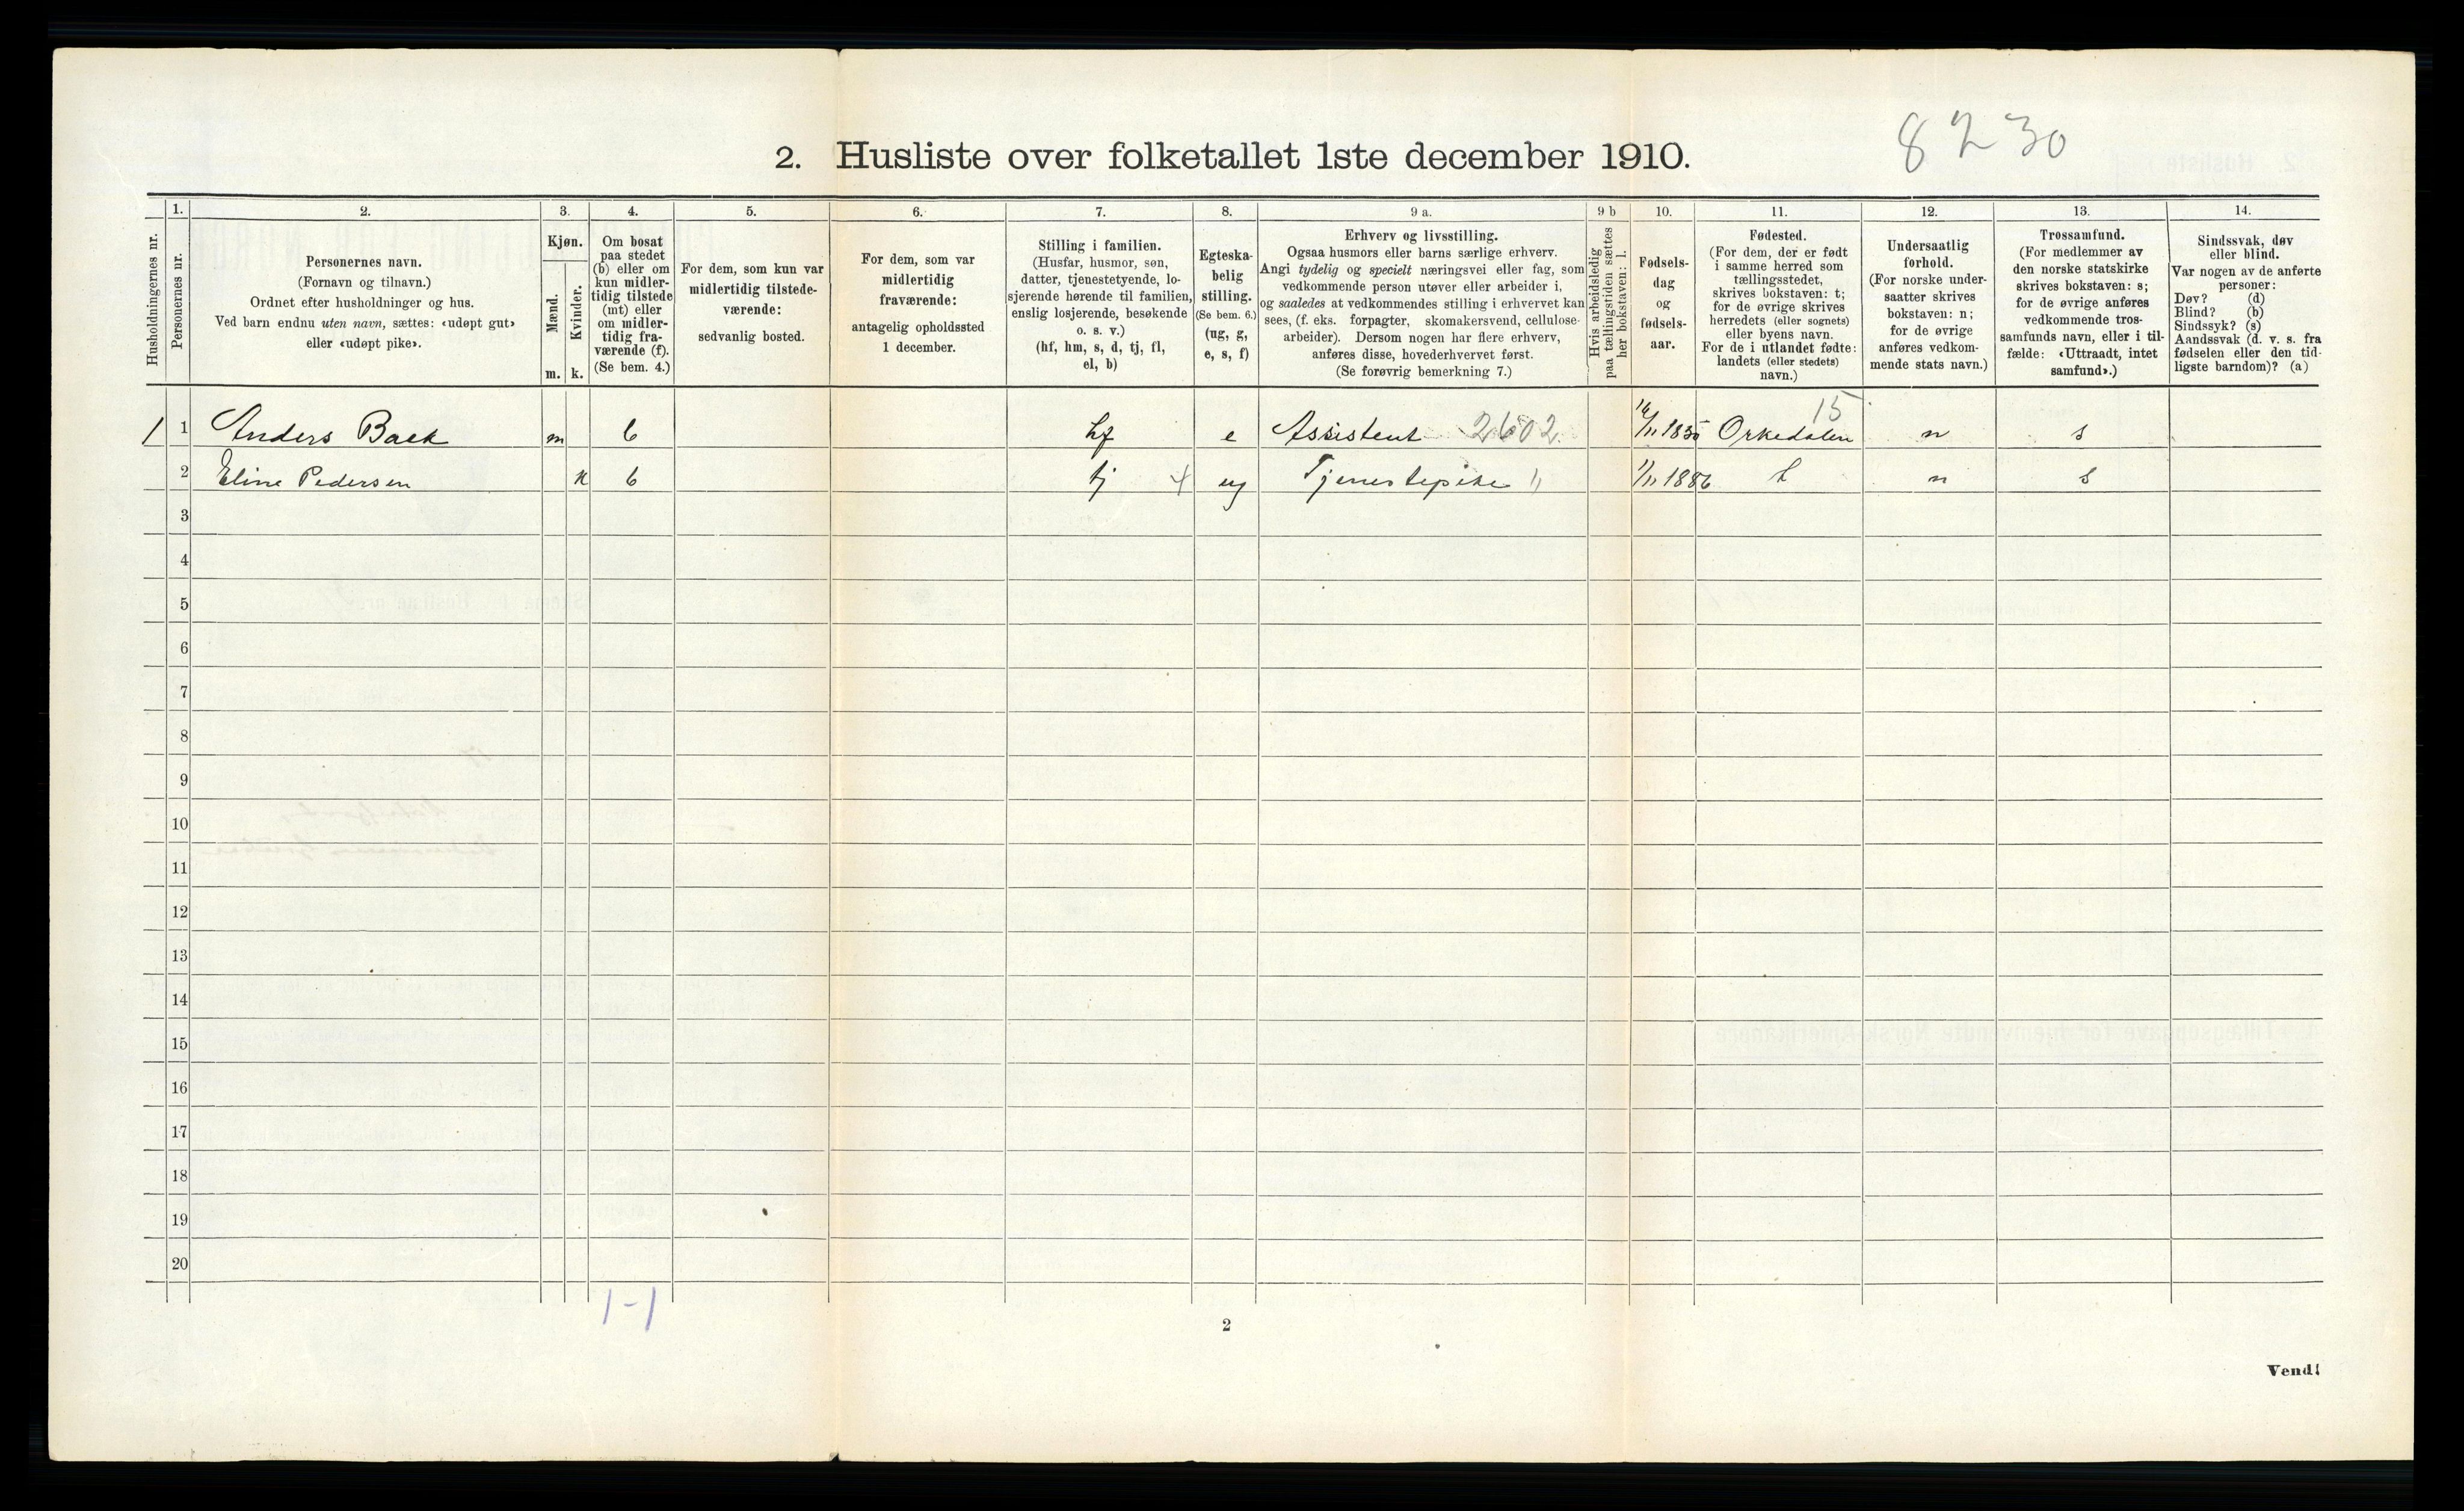 8230
2. Husliste over folketallet 1ste december 1910.
Husholdningernes nr.
1.
Personernes nr.
2.
Personernes navn.
(Fornavn og tilnavn.)
Ordnet efter husholdninger og hus.
Ved barn endnu uten navn, sættes: «udøpt gut»
eller «udøpt pike».
3.
Kjøn.
Mænd.
Kvinder.
m. k.
4.
Om bosat
paa stedet
(b) eller om
kun midler-
tidig tilstede
(mt) eller
om midler-
tidig fra-
værende (f).
(Se bem. 4.)
5.
For dem, som kun var
midlertidig tilstede-
værende:
sedvanlig bosted.
6.
For dem, som var
midlertidig
fraværende:
antagelig opholdssted
1 december.
7.
Stilling i familien.
(Husfar, husmor, søn,
datter, tjenestetyende, lo-
sjerende hørende til familien,
enslig losjerende, besøkende
o. s. v.)
(hf, hm, s, d, tj, fl,
el, b)
8.
Egteska-
belig
stilling.
(Se bem. 6.)
(ug, g,
e, s, f)
9 a.
Erhverv og livsstilling.
Ogsaa husmors eller barns særlige erhverv.
Angi tydelig og specielt næringsvei eller fag, som
vedkommende person utøver eller arbeider i,
og saaledes at vedkommendes stilling i erhvervet kan
sees, (f. eks. forpagter, skomakersvend, cellulose-
arbeider). Dersom nogen har flere erhverv,
anføres disse, hovederhvervet først.
(Se forøvrig bemerkning 7.)
9 b
Hvis arbeidsledig
paa tællingstiden sættes
her bokstaven: l.
10.
Fødsels-
dag
og
fødsels-
aar.
11.
Fødested.
(For dem, der er født
i samme herred som
tællingsstedet,
skrives bokstaven: t;
for de øvrige skrives
herredets (eller sognets)
eller byens navn.
For de i utlandet fødte:
landets (eller stedets)
navn.)
12.
Undersaatlig
forhold.
(For norske under-
saatter skrives
bokstaven: n;
for de øvrige
anføres vedkom-
mende stats navn.)
13.
Trossamfund.
(For medlemmer av
den norske statskirke
skrives bokstaven: s;
for de øvrige anføres
vedkommende tros-
samfunds navn, eller i til-
fælde: «Uttraadt, intet
samfund».)
14.
Sindssvak, døv
eller blind.
Var nogen av de anførte
personer:
Døv? (d)
Blind? (b)
Sindssyk? (s)
Aandssvak (d. v. s. fra
fødselen eller den tid-
ligste barndom)? (a)
15
1 1 Anders Baek m b hf e Assistent 2602 Orkedalen n s
2 Eline Pedersen k b tj 4 ug Tjenestepike 11 1/11 1886 t n s
3
4
5
6
7
8
9
10
11
12
13
14
15
16
17
18
19
20
1-1
2
Vend!